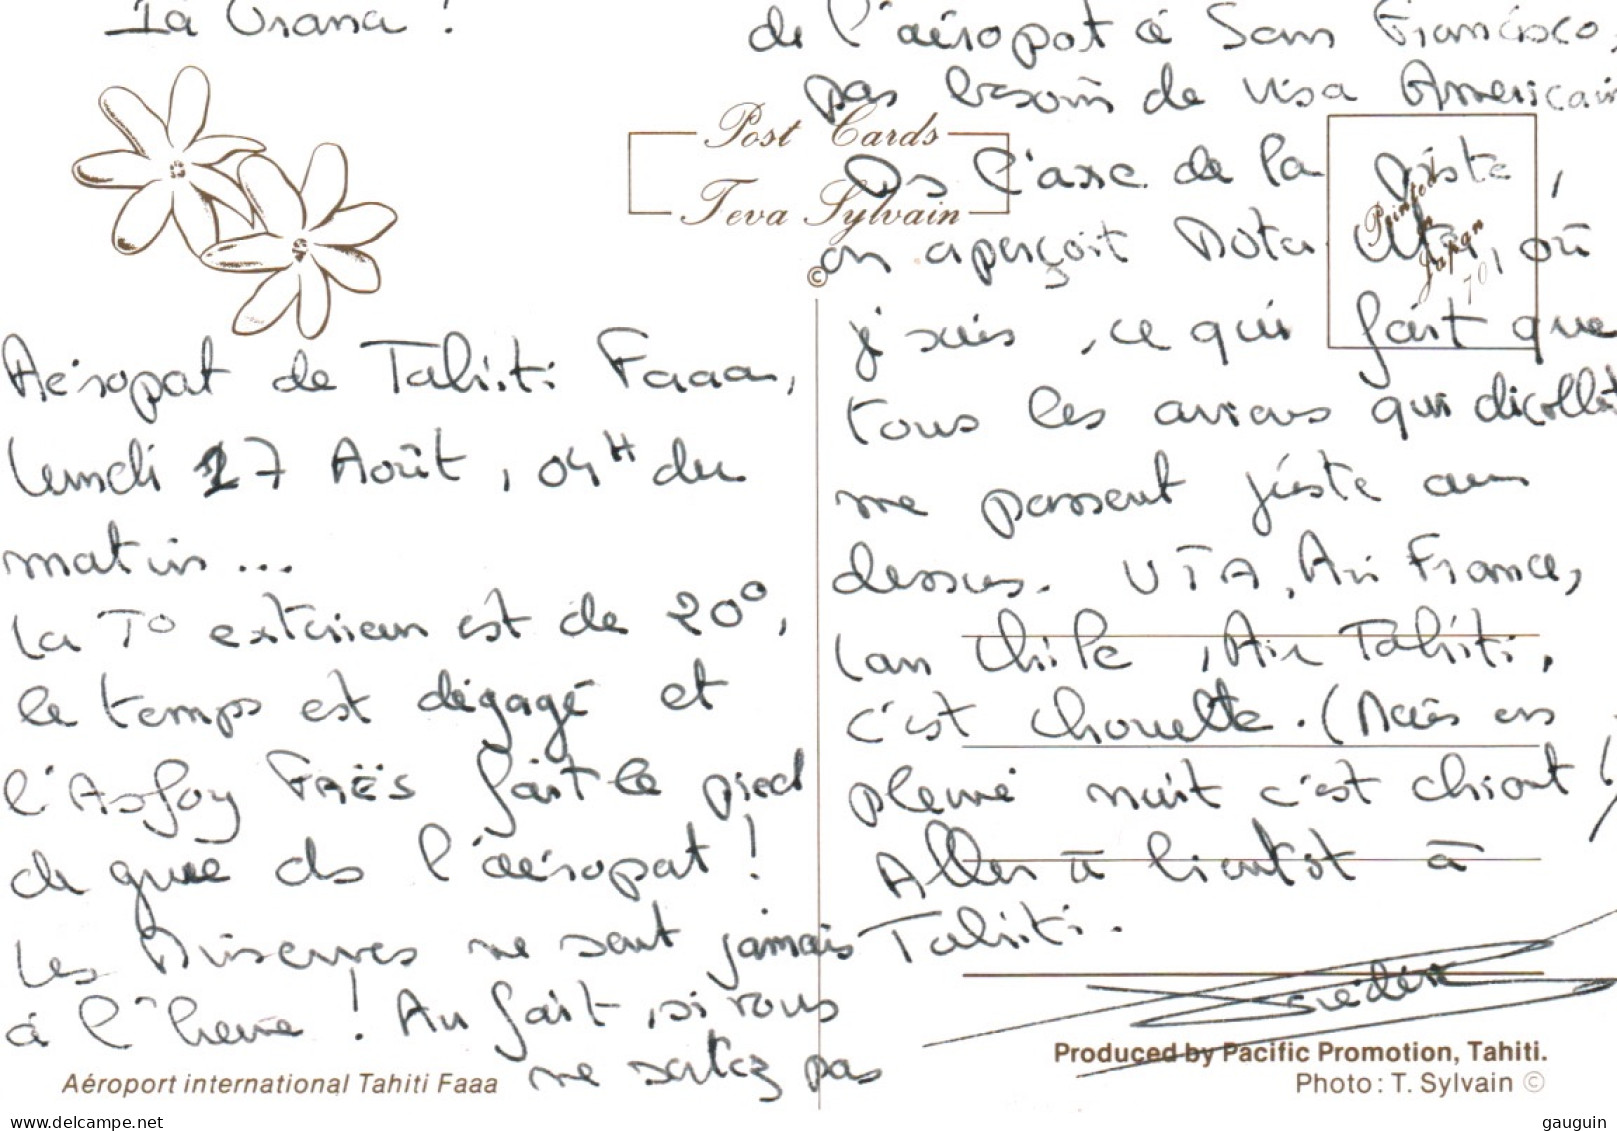 Ia Orana !
Aéroport de Tahiti Faaa,
lundi 17 Août, 04H du
matin...
La T° extérieur est de 20°,
le temps est dégagé et
l'Asfoy FAËS fait le pied
de grue ds l'aéroport !
Les Minerves ne sont jamais
à l'heure ! Au fait, si vous
ne sortez pas
de l'aéroport à San Francisco,
pas besoin de visa Americain
Ds l'axe de la piste,
on aperçoit Mota Uta, où
j'suis, ce qui fait que
tous les avions qui décollent
me passent juste au
dessus. UTA, Air France,
Lan Chile, Air Tahiti,
c'est chouette. (Mais en
pleine nuit c'est chiant !)
Aller à bientôt à
Tahiti.
Frédéric
Post Cards
Teva Sylvain
©
Printed
in
Japan
70
Aéroport international Tahiti Faaa
Produced by Pacific Promotion, Tahiti.
Photo : T. Sylvain ©
www.delcampe.net
gauguin